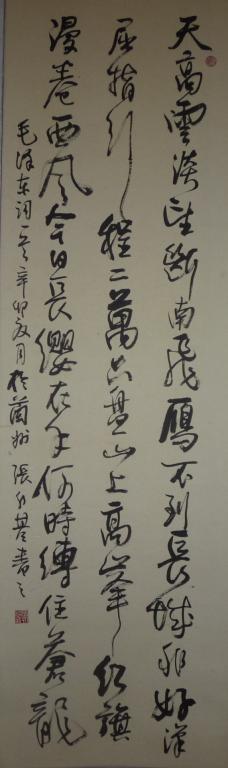 天高雲淡望斷南飛鴈不到長城非好漢
屈指行程二萬六盤山上高峰紅旗
漫卷西風今日長纓在手何時縛住蒼龍
毛泽东词一首辛卯夏月於蘭州張書之